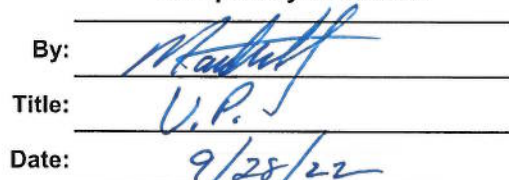 By:
Title: V.P.
Date: 9/28/22